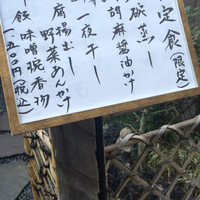 定食（限定）
蒸し
胡麻醤油かけ
一夜干し
腐揚出し
野菜あんかけ
飯 味噌椀 香物
一、五〇〇円（税込）